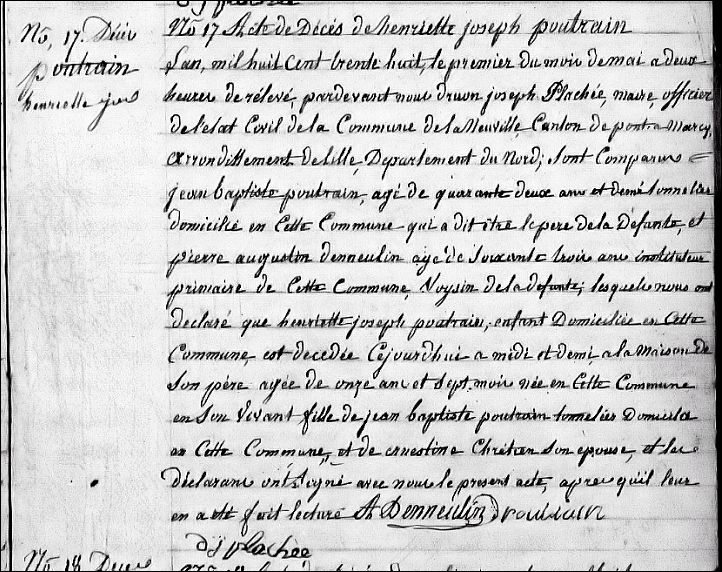 No, 17. Décès
poutrain
henriette jos
No 17 Acte de Décès de henriette joseph poutrain
L'an, mil huit Cent trente huit, le premier du mois de mai a deux
heures de rélevé, pardevant nous druon joseph Plachée, maire, officier
de l'état Civil de la Commune de la Neuville, Canton de pont a Marcq,
arrondissement de Lille, Departement du Nord, sont Comparus
jean baptiste poutrain, agé de quarante deux ans et demi tonnelier
domicilié en Cette Commune qui a dit être le pere de la Defante, et
pierre augustin denneulin agé de soixante trois ans instituteur
primaire de Cette Commune, Voysin de la defante, lesquels nous ont
declaré que henriette joseph poutrain, enfant Domiciliée en Cette
Commune, est decedée Cejourdhui a midi et demi, a la Maison de
son père agée de onze ans et sept mois née en Cette Commune
en son Vivant fille de jean baptiste poutrain tonnelier Domicilié
en Cette Commune, et de ernestine Chrétien son épouse, et les
déclarans ont signé avec nous le present acte, apres qu'il leur
en a été fait lecture A Denneulin poutrain
dj plachée
No 18 Décès